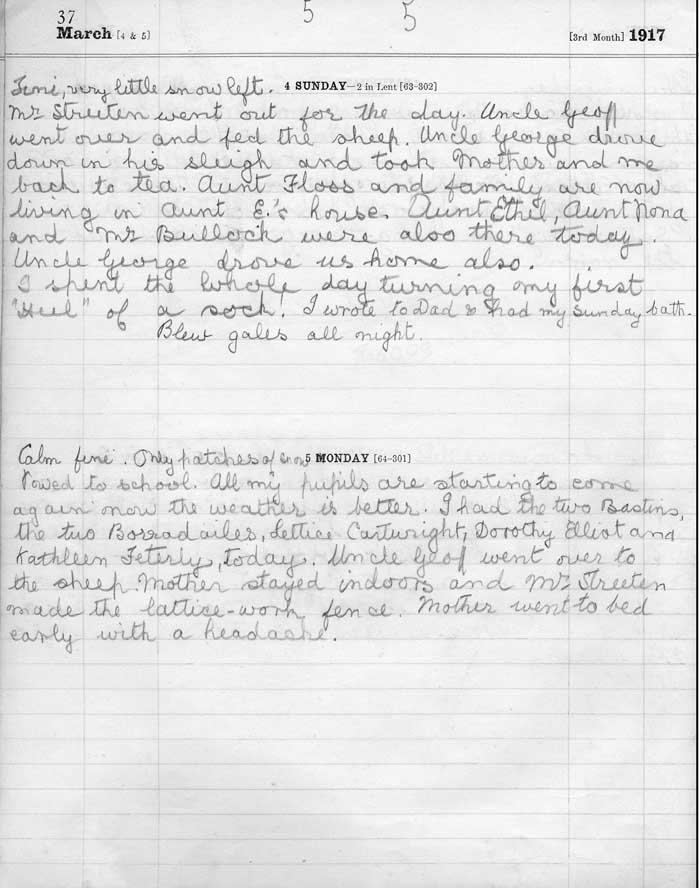 37
5 5
March [4 & 5] [3rd Month] 1917
Fine, very little snow left. 4 SUNDAY—2 in Lent [63-302]
Mr Streeten went out for the day. Uncle Geoff
went over and fed the sheep. Uncle George drove
down in his sleigh and took Mother and me
back to tea. Aunt Floss and family are now
living in Aunt E.'s house. Aunt Ethel, Aunt Nona
and Mr Bullock were also there today.
Uncle George drove us home also.
I spent the whole day turning my first
"Heel" of a sock! I wrote to Dad & had my Sunday bath.
Blew gales all night.
Calm fine. Only patches of snow 5 MONDAY [64-301]
Rowed to school. All my pupils are starting to come
again now the weather is better. I had the two Bastins,
the two Borradailes, Lettice Cartwright, Dorothy Elliot and
Kathleen Feterly, today. Uncle Geof went over to
the sheep. Mother stayed indoors and Mr Streeten
made the lattice-work fence. Mother went to bed
early with a headache.